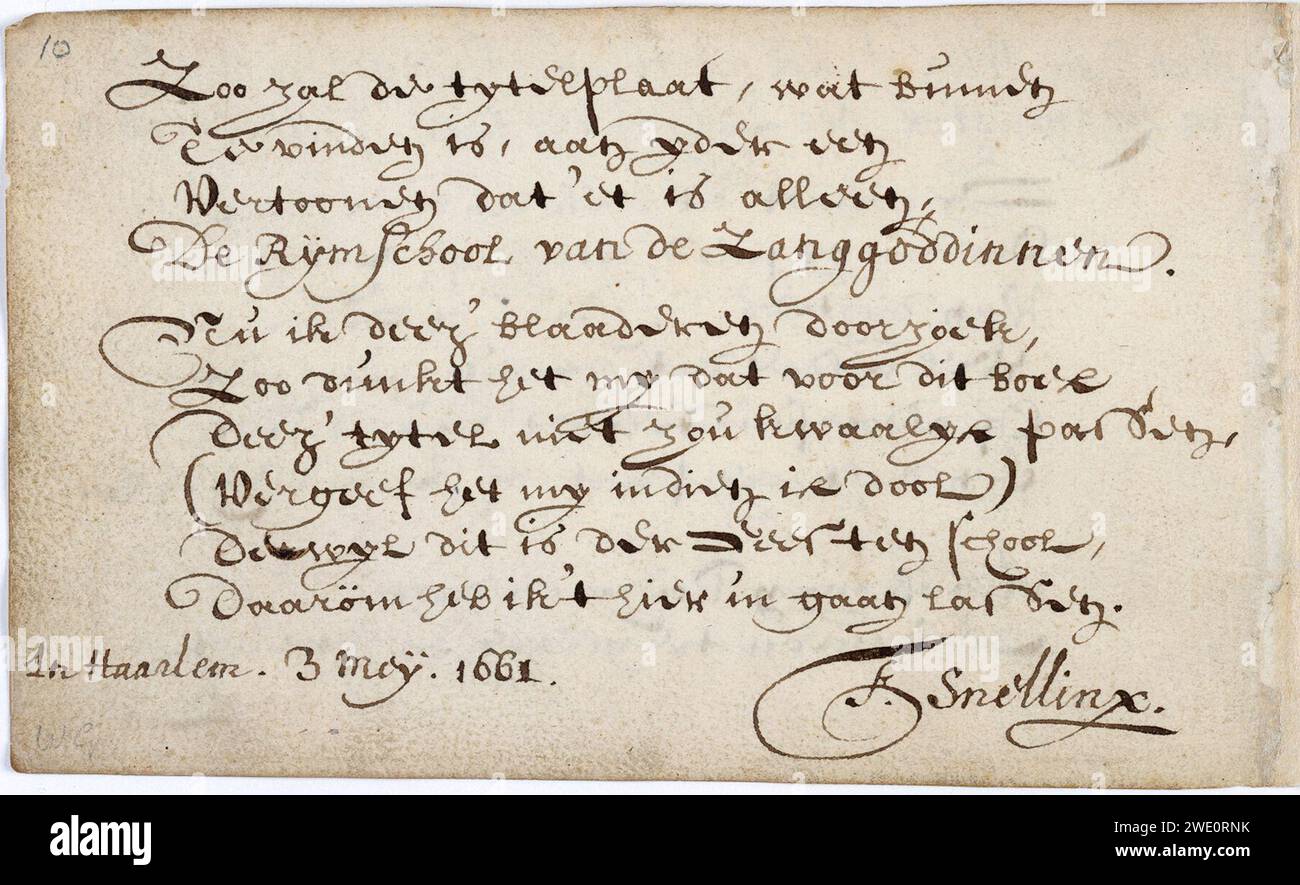 10
Zoo zal de tytelplaat, wat binnen
Te vinden is, aan yder een
Vertoonen dat 'et is alleen,
De Rÿmschool van de Zanggoddinnen.
Nu ik deez' blaaderen doorzoek,
Zoo dunkt het my dat voor dit boek
Deez' tytel niet zou kwaalyk passen,
(Vergeef het my indien ik dool)
Derwyl dit is der Geesten school,
Daaröm heb ik 't hier in gaan lassen.
In Haarlem. 3 Meÿ. 1661.
F. Snellinx.
alamy
Image ID: 2WE0RNK
www.alamy.com